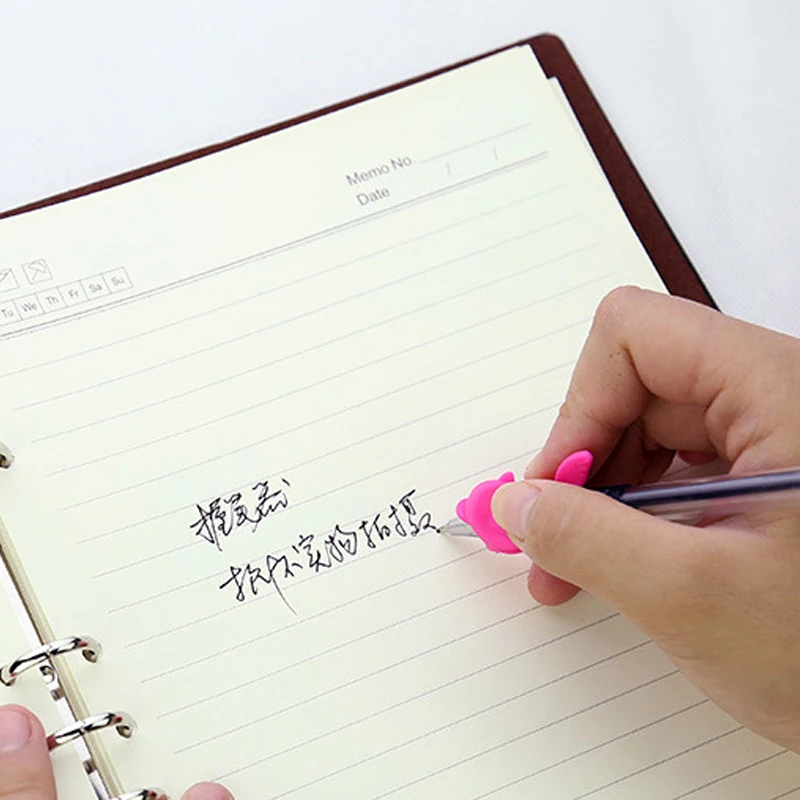 Memo No.
Date / /
Tu We Th Fr Sa Su
握笔器
实物拍摄